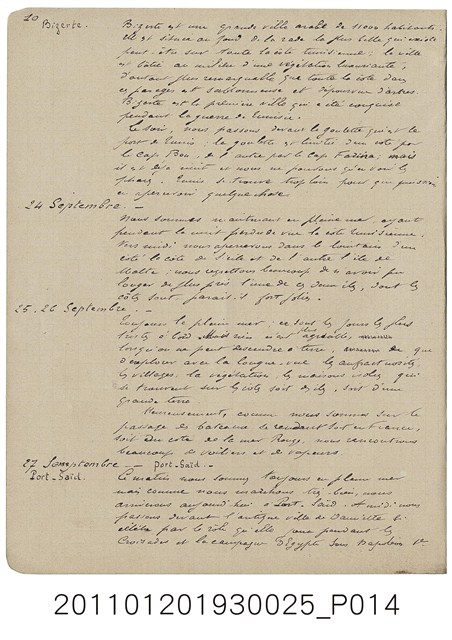 20
Bizerte.
Bizerte est une grande ville arabe de 11000 habitants.
Elle est située au fond de la rade la plus belle qui existe
peut-être sur toute la côte tunisienne : la ville
est bâtie au milieu d'une végétation luxuriante,
d'autant plus remarquable que toute la côte dans
ces parages est sablonneuse et dépourvue d'arbres.
Bizerte est la première ville qui a été conquise
pendant la guerre de Tunisie.
Le soir, nous passons devant la goulette qui est le
port de Tunis ; la goulette est limitée d'un côté par
le Cap Bon, de l'autre par le Cap Farina ; mais
il est nuit et nous ne pouvons qu'en voir les
phares. Tunis se trouve trop loin pour que
en apercevoir quelque chose
24 Septembre. -
Nous sommes maintenant en pleine mer, ayant
pendant la nuit perdu de vue la côte tunisienne.
Vers midi nous apercevons dans le lointain d'un
côté la côte de Sicile et de l'autre l'île de
Malte ; nous regrettons beaucoup de n'avoir pu
longer de plus près l'une de ces deux îles, dont les
côtes sont, paraît-il fort jolies.
25, 26 Septembre. -
Toujours la pleine mer ; ce sont les jours les plus
tristes à bord. Mais rien n'est plus agréable,
lorsqu'on ne peut descendre à terre, que
d'explorer avec la longue-vue les anfractuosités,
les villages, la végétation, les maisons isolées qui
se trouvent sur les côtes soit des îles, soit d'une
grande terre.
Heureusement, comme nous sommes sur le
passage des bateaux se rendant soit en France,
soit du côté de la mer Rouge, nous rencontrons
beaucoup de voiliers et de vapeurs.
27 Septembre - Port-Saïd. -
Port-Saïd.
Ce matin nous sommes toujours en pleine mer
mais comme nous marchons très bien, nous
arriverons aujourd'hui à Port-Saïd. A midi nous
passons devant l'antique ville de Damiette
célèbre par le rôle qu'elle joua pendant les
Croisades et la campagne d'Egypte sous Napoléon 1er
201101201930025_P014